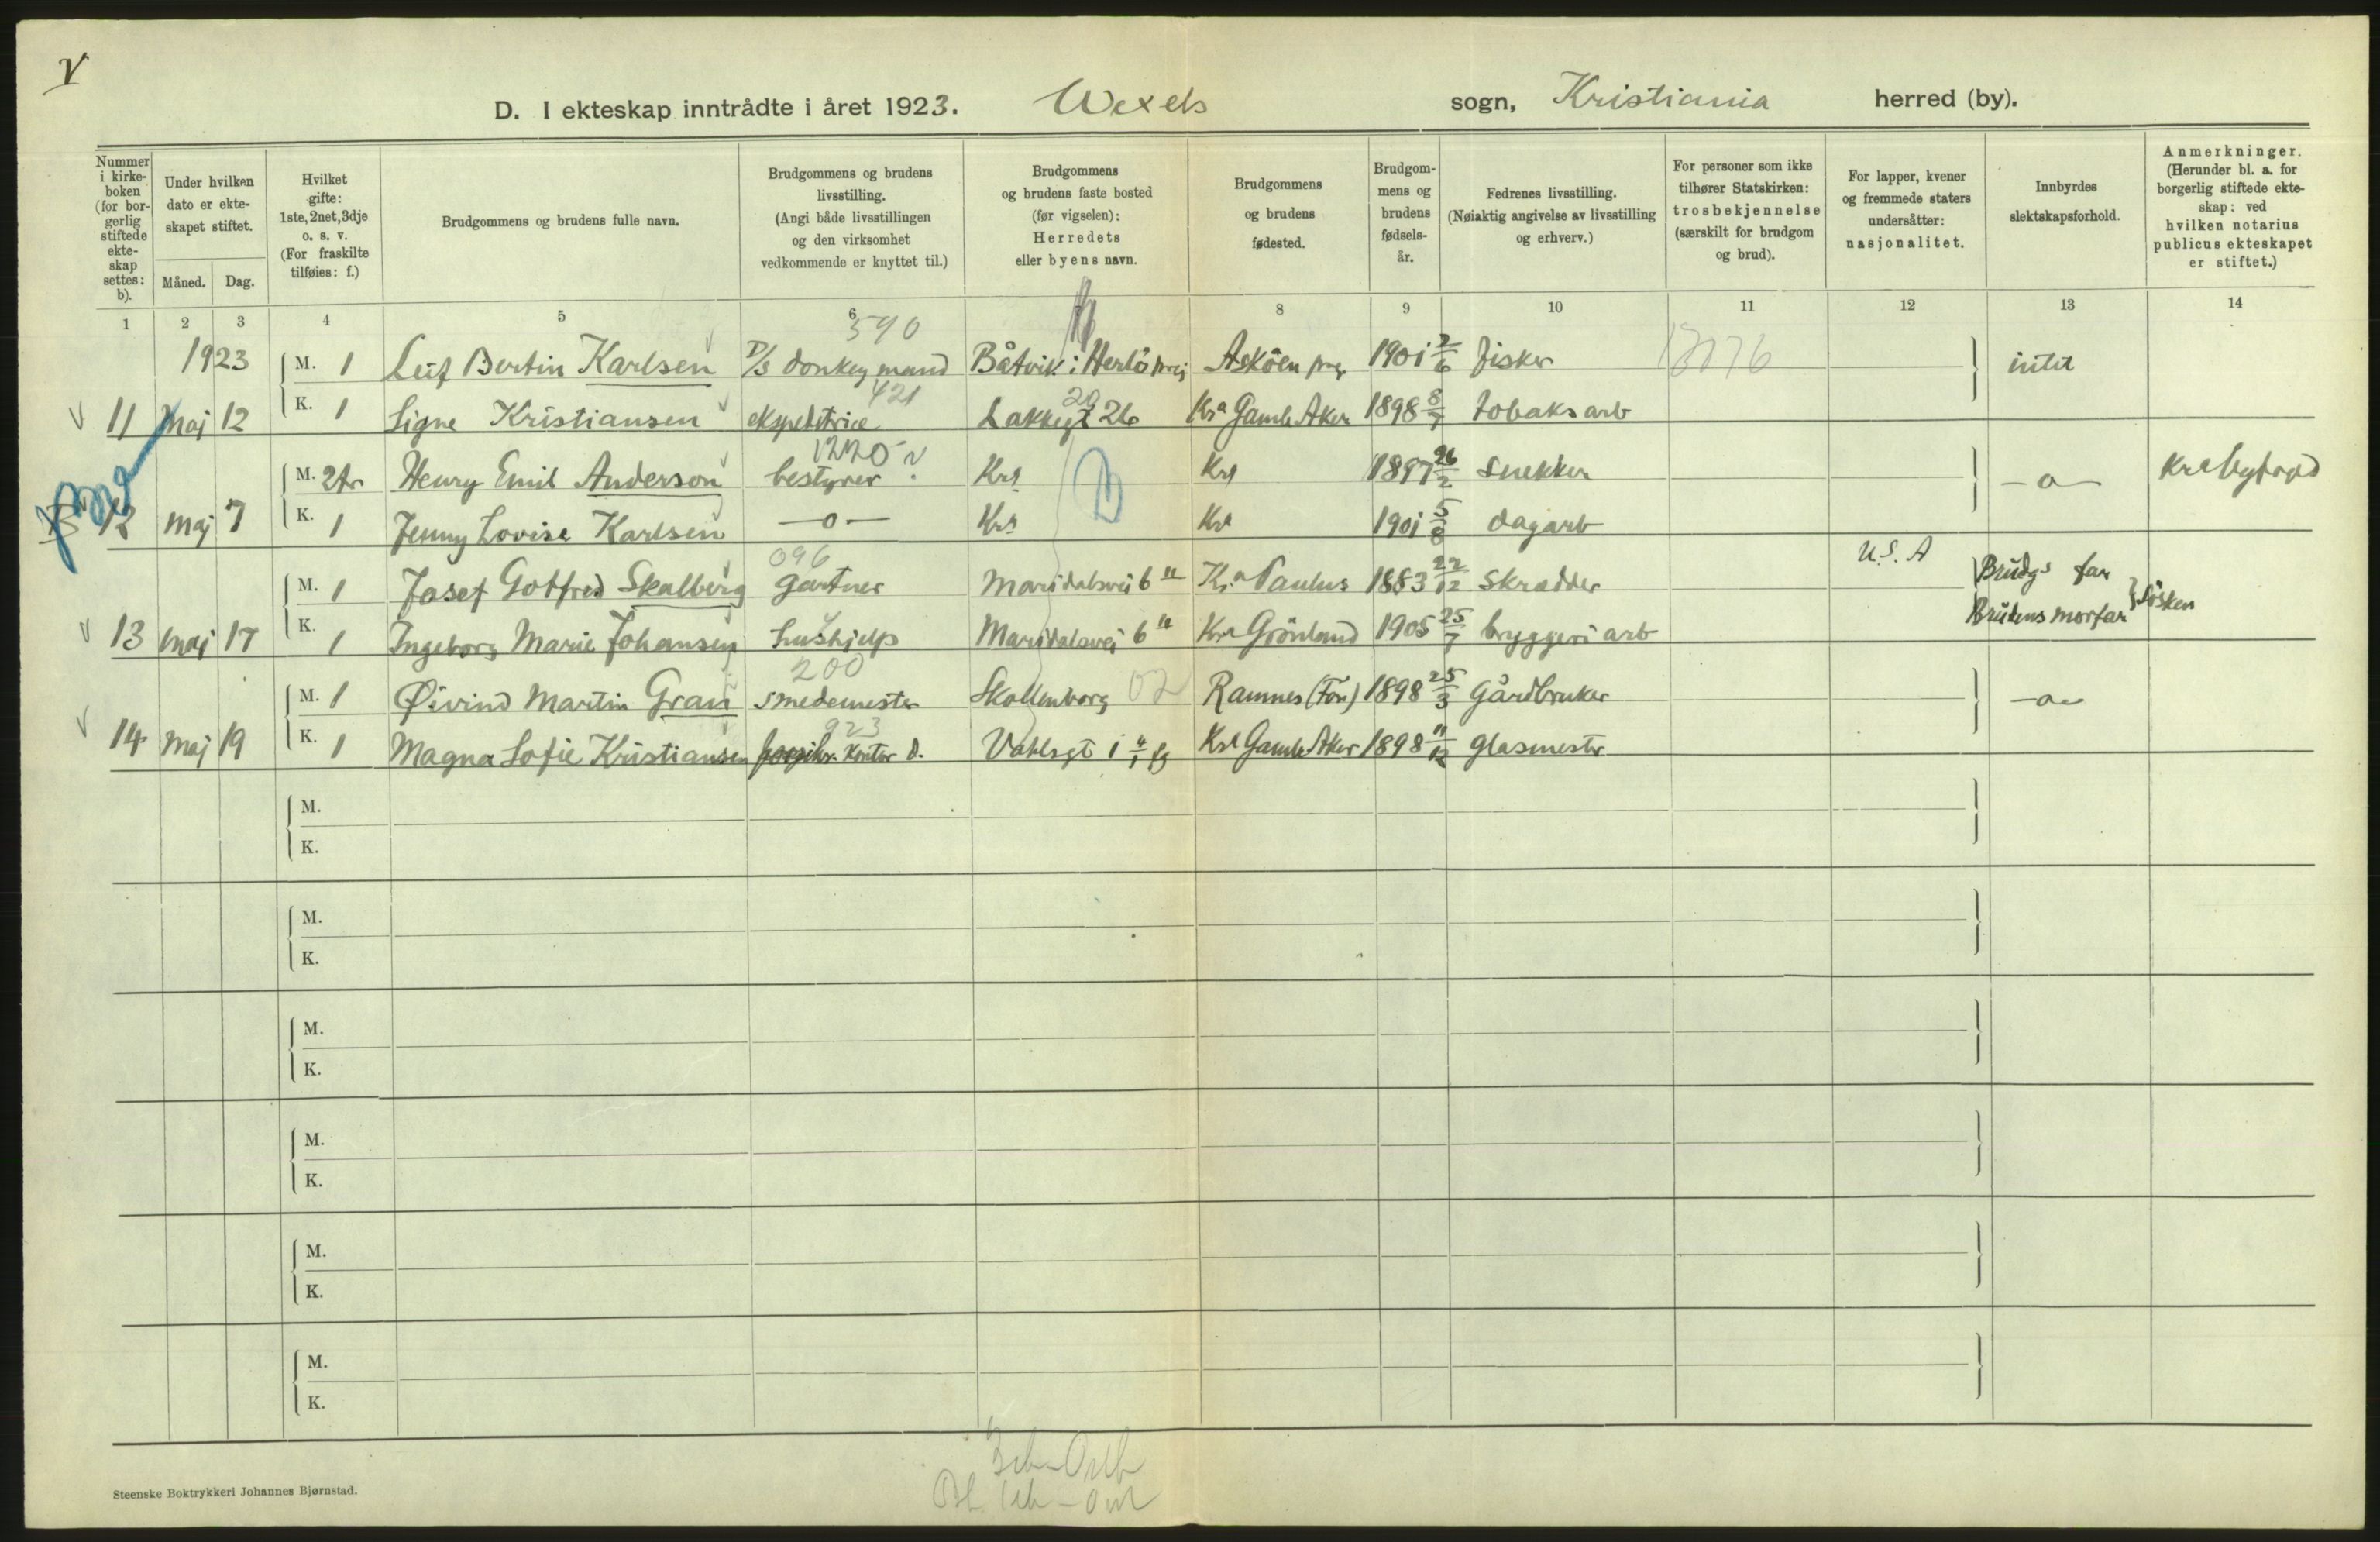 V
D. I ekteskap inntrådte i året 1923. Wexels sogn, Kristiania herred (by).
Nummer i kirke-boken (for bor-gerlig stiftede ekte-skap settes: b).
Under hvilken dato er ekte-skapet stiftet.
Måned. Dag.
Hvilket gifte: 1ste, 2net, 3dje o. s. v. (For fraskilte tilføies: f.)
Brudgommens og brudens fulle navn.
Brudgommens og brudens livsstilling. (Angi både livsstillingen og den virksomhet vedkommende er knyttet til.)
Brudgommens og brudens faste bosted (før vigselen): Herredets eller byens navn.
Brudgommens og brudens fødested.
Brudgom-mens og brudens fødsels-år.
Fedrenes livsstilling. (Nøiaktig angivelse av livsstilling og erhverv.)
For personer som ikke tilhører Statskirken: trosbekjennelse (særskilt for brudgom og brud).
For lapper, kvener og fremmede staters undersåtter: nasjonalitet.
Innbyrdes slektskapsforhold.
Anmerkninger. (Herunder bl. a. for borgerlig stiftede ekte-skap: ved hvilken notarius publicus ekteskapet er stiftet.)
1 2 3 4 5 6 8 9 10 11 12 13 14
590
1923 M. 1 Leif Bertin Karlsen D/S donkeymand Båtvik i Herlö Asköen 1901 2/6 fisker intet
421 20
11 Maj 12 K. 1 Signe Kristiansen ekspeditrice Lakkegt 26 Kra Gamle Aker 1898 8/7 tobaksarb
1220
M. 2 Henry Emil Anderson bestyrer Kra Kra 1897 26/2 Snekker -o-
12 maj 7 K. 1 Jenny Lovise Karlsen -o- Kra Kra 1901 dagarb
096
M. 1 Josef Gotfred Skalberg gartner Maridalsvei 6 Kra Paulus 1883 22/12 Skrædder U.S.A Brudgs far
13 maj 17 K. 1 Ingeborg Marie Johansen hushjelp Maridalsvei 6 Kra Grönland 1905 25/7 bryggeri arb Brudens morfar } Søsken
200
M. 1 Øivind Martin Gran smedemester Skollenborg 02 Ramnes (Tön) 1898 25/3 gårdbruker -o-
923
14 maj 19 K. 1 Magna Sofie Kristiansen kontor d. Vahlsgt 1 Kra Gamle Aker 1898 11/12 glasmester
M.
K.
M.
K.
M.
K.
M.
K.
M.
K.
M.
K.
Steenske Boktrykkeri Johannes Bjørnstad.